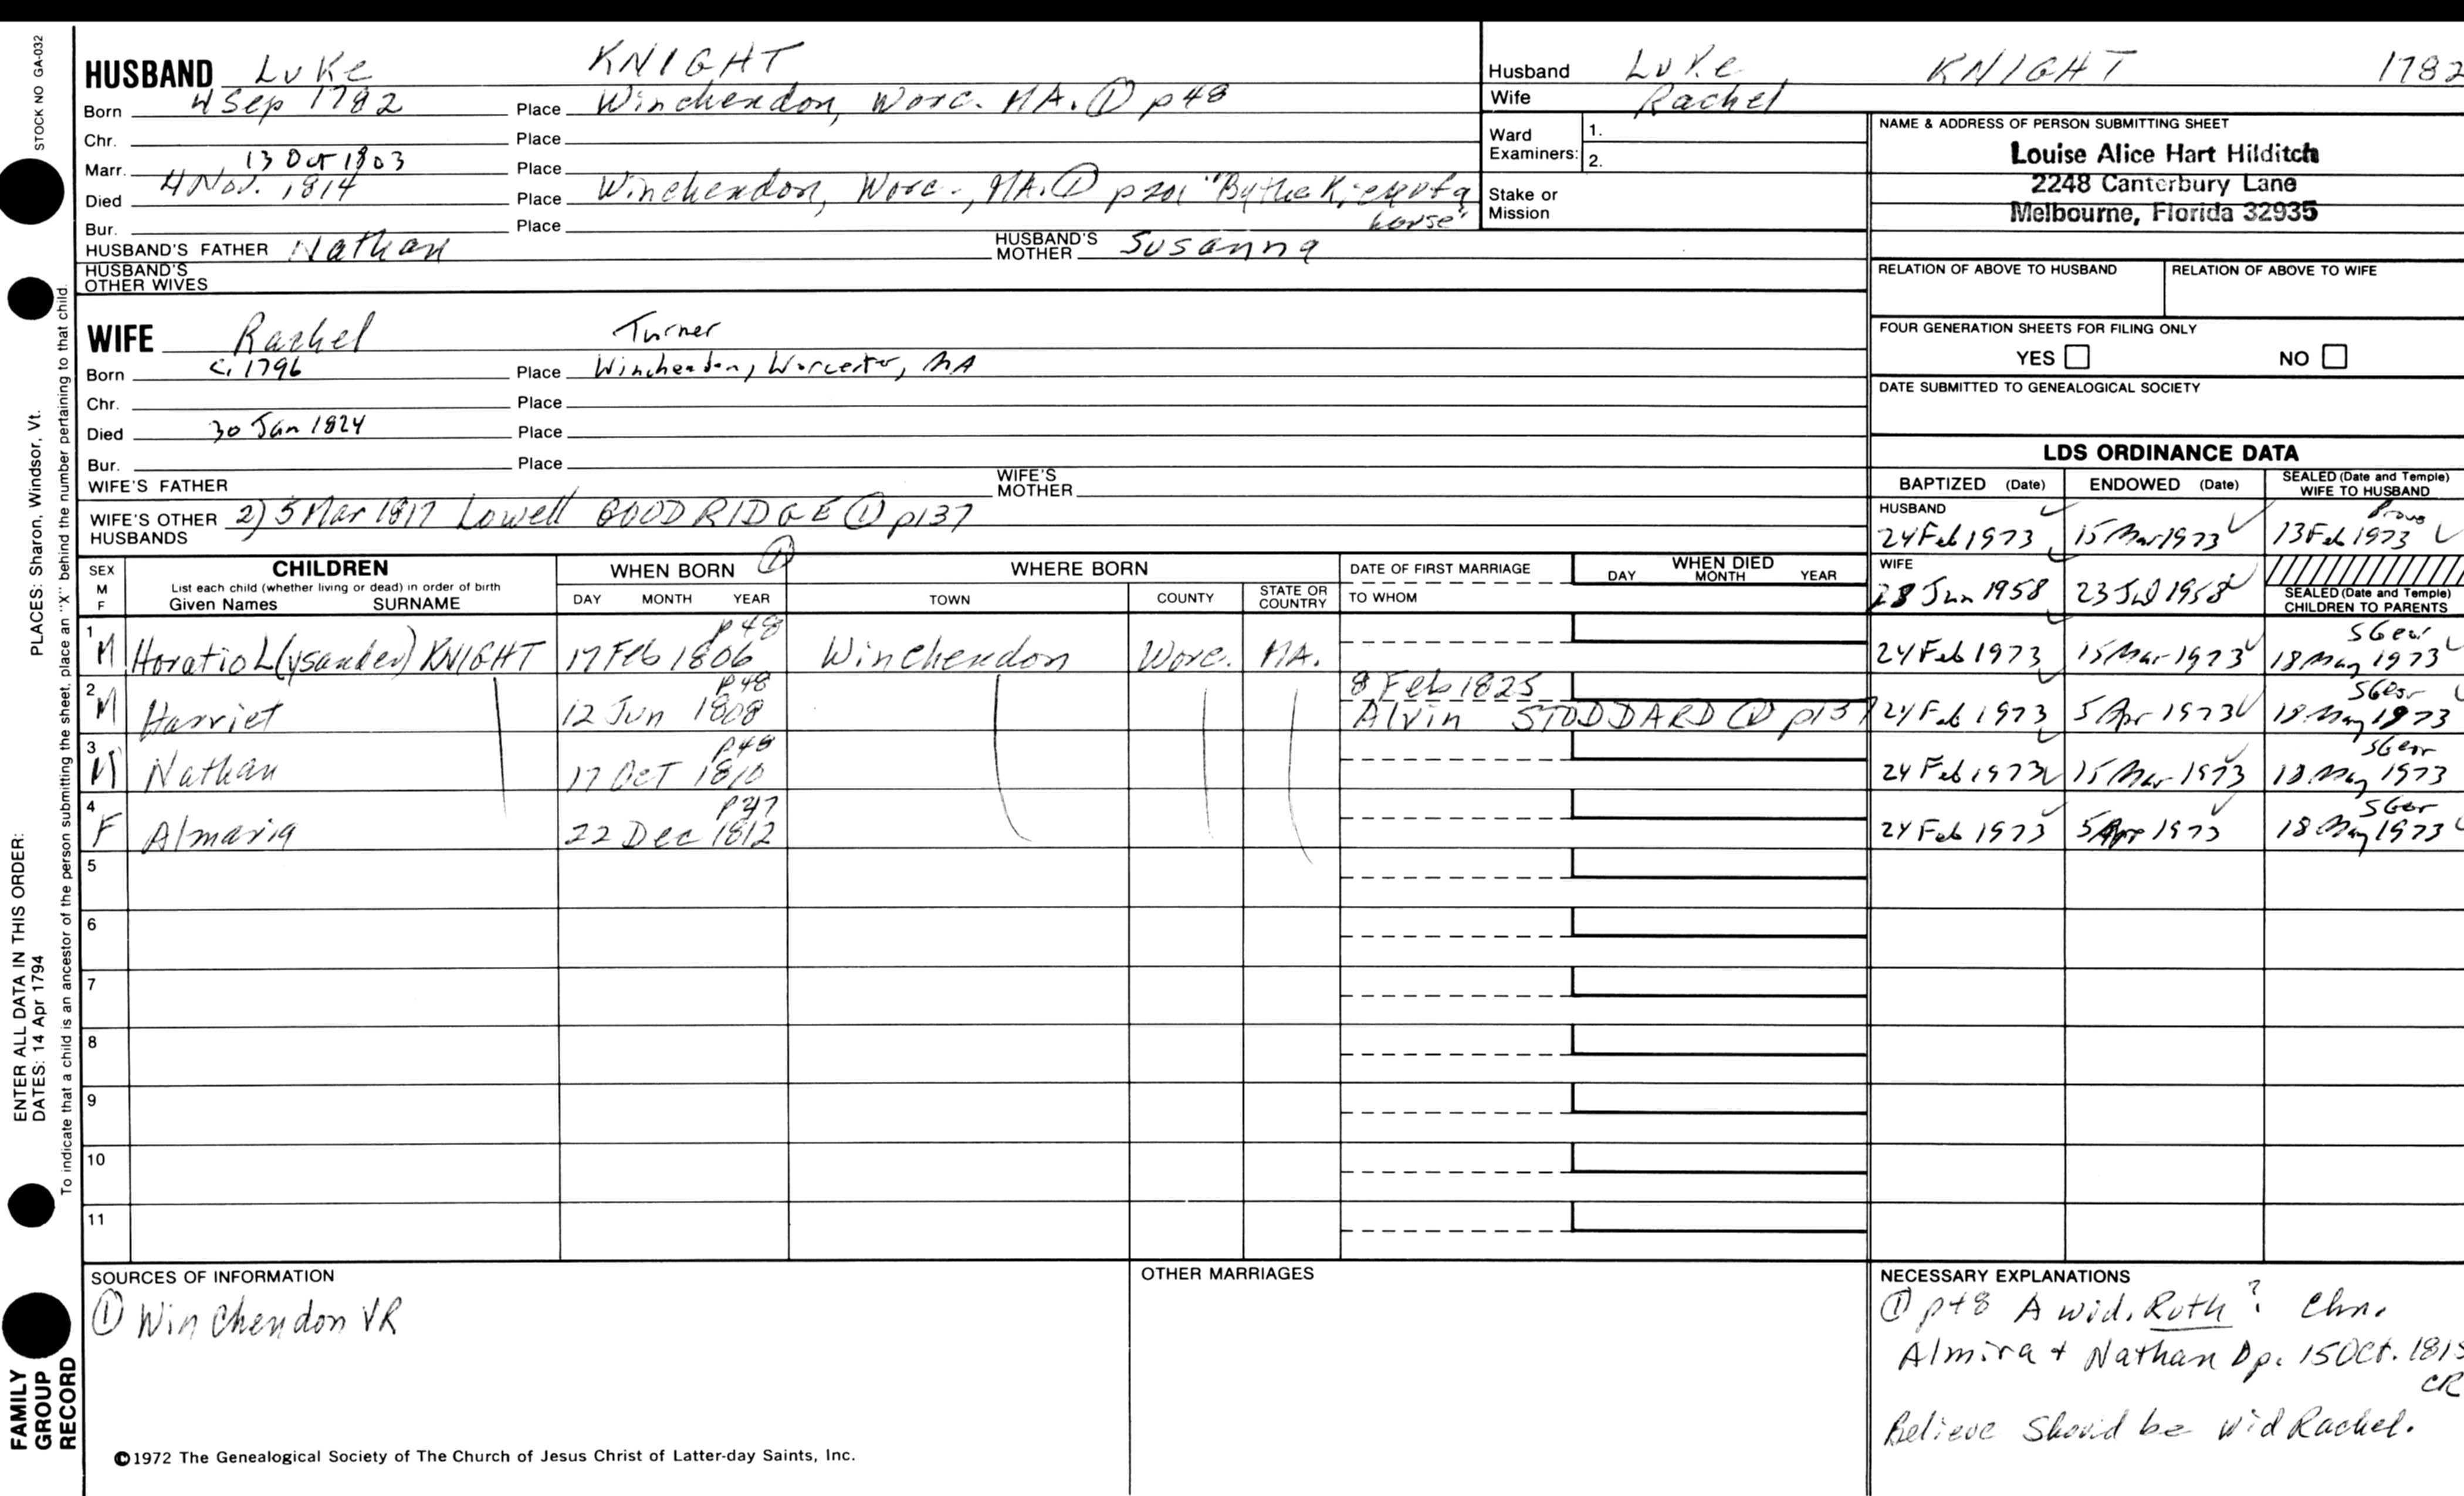 STOCK NO GA-032
HUSBAND Luke KNIGHT
Born 4 Sep 1782 Place Winchendon, Worc. MA. ① p48
Chr. Place
Marr. 13 Oct 1803 Place
Died 4 Nov. 1814 Place Winchendon, Worc., MA. ① p201 "By the Kick of a
horse"
Bur. Place
HUSBAND'S FATHER Nathan HUSBAND'S MOTHER Susanna
HUSBAND'S OTHER WIVES
WIFE Rachel Turner
Born c. 1796 Place Winchendon, Worcester, MA
Chr. Place
Died 30 Jan 1824 Place
Bur. Place
WIFE'S FATHER WIFE'S MOTHER
WIFE'S OTHER HUSBANDS 2) 5 Mar 1817 Lowell GOODRIDGE ① p137
Husband Luke KNIGHT 1782
Wife Rachel
Ward Examiners: 1.
2.
Stake or Mission
NAME & ADDRESS OF PERSON SUBMITTING SHEET
Louise Alice Hart Hilditch
2248 Canterbury Lane
Melbourne, Florida 32935
RELATION OF ABOVE TO HUSBAND RELATION OF ABOVE TO WIFE
FOUR GENERATION SHEETS FOR FILING ONLY
YES NO
DATE SUBMITTED TO GENEALOGICAL SOCIETY
LDS ORDINANCE DATA
BAPTIZED (Date) ENDOWED (Date) SEALED (Date and Temple) WIFE TO HUSBAND
HUSBAND
Provo
24 Feb 1973 15 Mar 1973 13 Feb 1973
WIFE
28 Jun 1958 23 Jul 1958
SEALED (Date and Temple) CHILDREN TO PARENTS
SEX M F CHILDREN List each child (whether living or dead) in order of birth Given Names SURNAME
WHEN BORN ① DAY MONTH YEAR
WHERE BORN TOWN COUNTY STATE OR COUNTRY
DATE OF FIRST MARRIAGE TO WHOM
WHEN DIED DAY MONTH YEAR
p48
1 M Horatio L(ysander) KNIGHT 17 Feb 1806 Winchendon Worc. MA. 24 Feb 1973 15 Mar 1973 18 May 1973
p48 8 Feb 1825
2 M Harriet 12 Jun 1808 Alvin STODDARD ① p137 24 Feb 1973 5 Apr 1973 18 May 1973
p48
3 M Nathan 17 Oct 1810 24 Feb 1973 15 Mar 1973 18 May 1973
p47
4 F Almaria 22 Dec 1812 24 Feb 1973 5 Apr 1973 18 May 1973
5
6
7
8
9
10
11
SOURCES OF INFORMATION
① Winchendon VR
OTHER MARRIAGES
NECESSARY EXPLANATIONS
① p48 A wid. Ruth? Chn.
Almira + Nathan bp. 15 Oct. 1815
CR
Believe Should be wid Rachel.
©1972 The Genealogical Society of The Church of Jesus Christ of Latter-day Saints, Inc.
FAMILY
GROUP
RECORD
ENTER ALL DATA IN THIS ORDER:
DATES: 14 Apr 1794
PLACES: Sharon, Windsor, Vt.
To indicate that a child is an ancestor of the person submitting the sheet, place an "X" behind the number pertaining to that child.